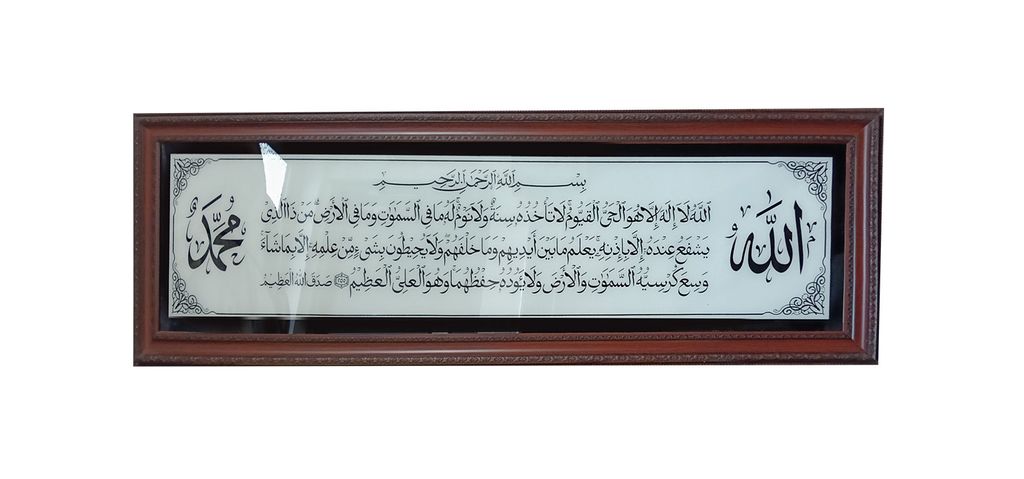 الله
بِسْمِ اللّٰهِ الرَّحْمٰنِ الرَّحِيْمِ
اَللّٰهُ لَا اِلٰهَ اِلَّا هُوَ الْحَيُّ الْقَيُّوْمُ لَا تَأْخُذُهُ سِنَةٌ وَلَا نَوْمٌ لَهُ مَا فِي السَّمٰوٰتِ وَمَا فِي الْاَرْضِ مَنْ ذَا الَّذِيْ
يَشْفَعُ عِنْدَهُ اِلَّا بِاِذْنِهِ يَعْلَمُ مَا بَيْنَ اَيْدِيْهِمْ وَمَا خَلْفَهُمْ وَلَا يُحِيْطُوْنَ بِشَيْءٍ مِّنْ عِلْمِهِ اِلَّا بِمَا شَآءَ
وَسِعَ كُرْسِيُّهُ السَّمٰوٰتِ وَالْاَرْضَ وَلَا يَئُوْدُهُ حِفْظُهُمَا وَهُوَ الْعَلِيُّ الْعَظِيْمُ ﴿٢٥٥﴾ صَدَقَ اللّٰهُ الْعَظِيْمُ
محمّد